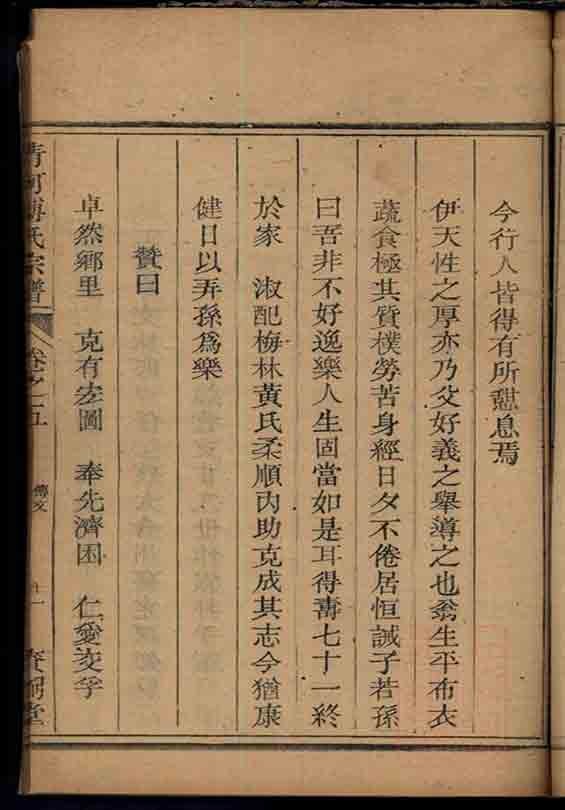 今行人皆得有所憇息焉
伊天性之厚亦乃父好義之舉導之也翁生平布衣
蔬食極其質樸勞苦身經日夕不倦居恒誡子若孫
曰吾非不好逸樂人生固當如是耳得壽七十一終
於家 淑配梅林黃氏柔順內助克成其志今猶康
健日以弄孫爲樂
贊曰
卓然鄉里 克有宏圖 奉先濟困 仁愛交孚
清河傅氏宗譜 卷之五 傳文 十一